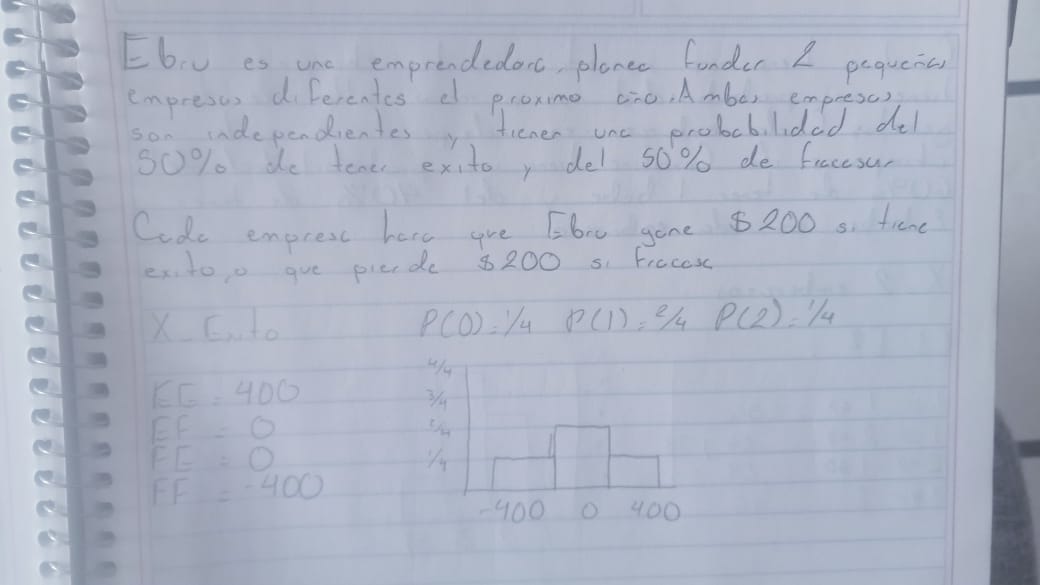 Ebru es una emprendedora, planea fundar 2 pequeñas
empresas diferentes el proximo año. Ambas empresas
son independientes y tienen una probabilidad del
50% de tener exito y del 50% de fracasar
Cada empresa hara que Ebru gane $200 si tiene
exito, o que pierda $200 si fracasa
X = Exito P(0) = 1/4 P(1) = 2/4 P(2) = 1/4
4/4
EE = 400 3/4
EF = 0 2/4
FE = 0 1/4
FF = -400
-400 0 400